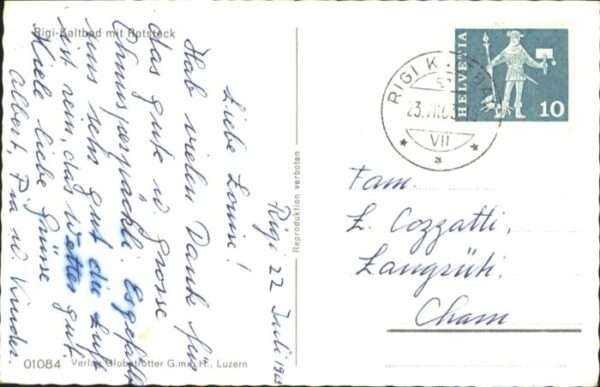 Rigi-Kaltbad mit Rotstock
Rigi 22 Juli
Liebe Louise!
Hab vielen Dank für
das gute u grosse
Chrusperpäckli. Es gefällt
uns sehr gut die Luft
ist rein, das Wetter gut.
Viele liebe Grüsse
Albert, Pia u Kinder.
01084 Verlag Globetrotter G.m.b.H., Luzern
Reproduktion verboten
HELVETIA
10
RIGI
23. VII
VII
Fam.
L. Cozzatti,
Langrüti.
Cham